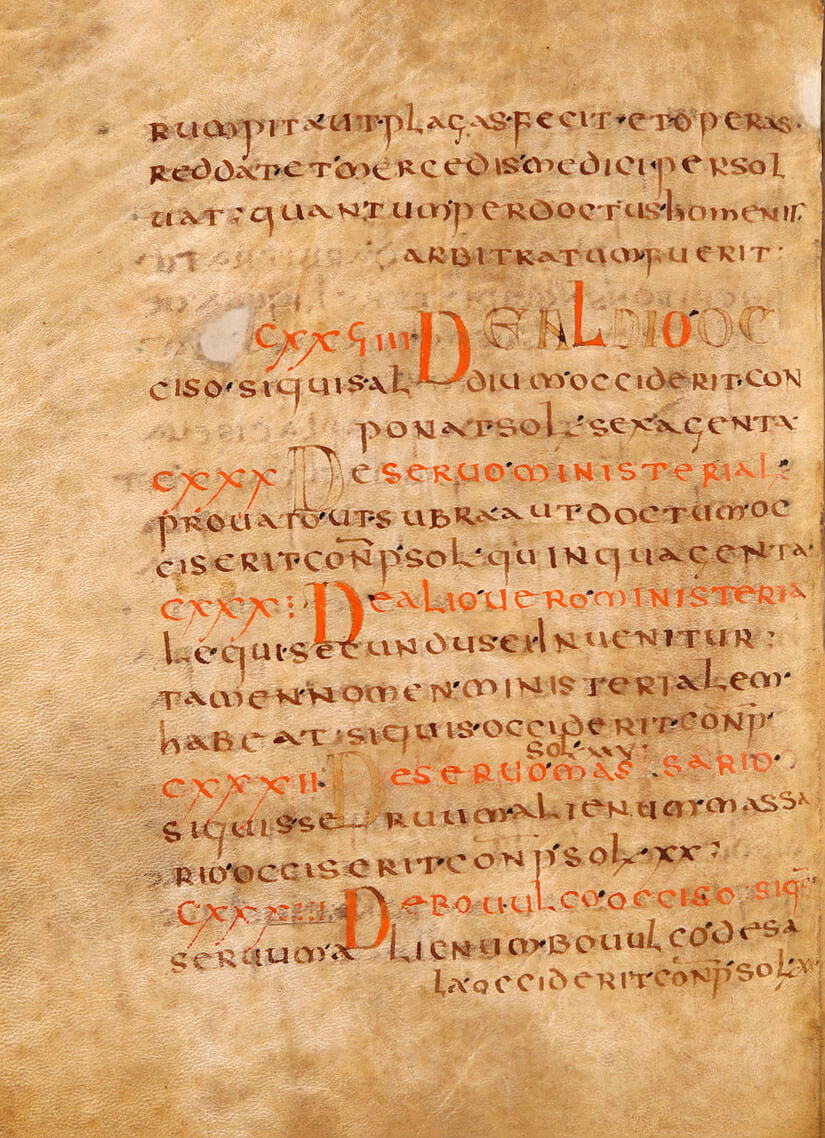 rumpit aut plagas fecit et operas
reddat et mercedis medici persol
uat quantum per doctus homenis
arbitratum fuerit
cxxuiiii De aldio oc
ciso si quis aldium occiderit con
ponat sol sexagenta
cxxx De seruo ministerial
prouato ut subra aut doctum oc
ciserit conp sol quinquagenta
cxxxi De alio uero ministeria
le qui secundus ei inuenitur
tamen nomen ministerialem
habeat si quis occiderit conp
sol xxu
cxxxii De seruo massario
si quis seruum alienum massa
rio occiserit conp sol xx
cxxxiii De bouulco occiso siq
seruum alienum bouulco de sa
la occiderit conp sol